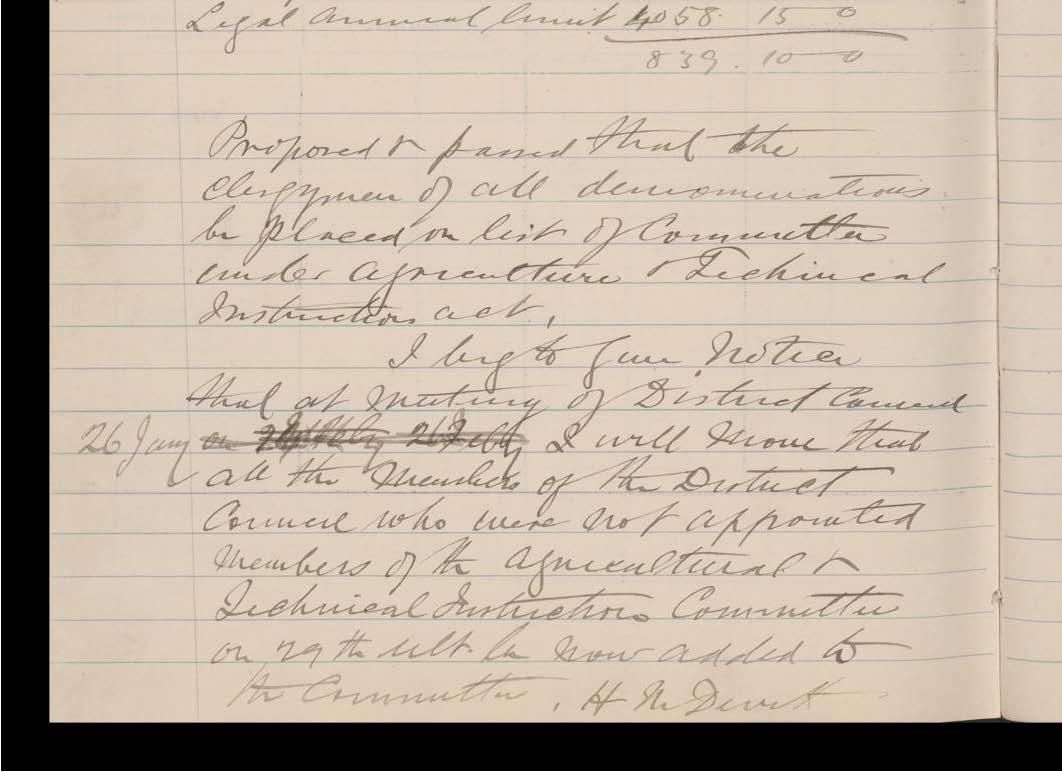 Legal annual limit 4058. 15 0
839. 10 0
Proposed & passed that the
clergymen of all denominations
be placed on list of Committee
under Agriculture & Technical
Instruction act.
I beg to give Notice
that at meeting of District Council
26 Jany on 26 Feby I will move that
all the Members of the District
Council who were not appointed
members of the Agricultural &
Technical Instruction Committee
on 29th ult. be now added to
the Committee. H McDevitt